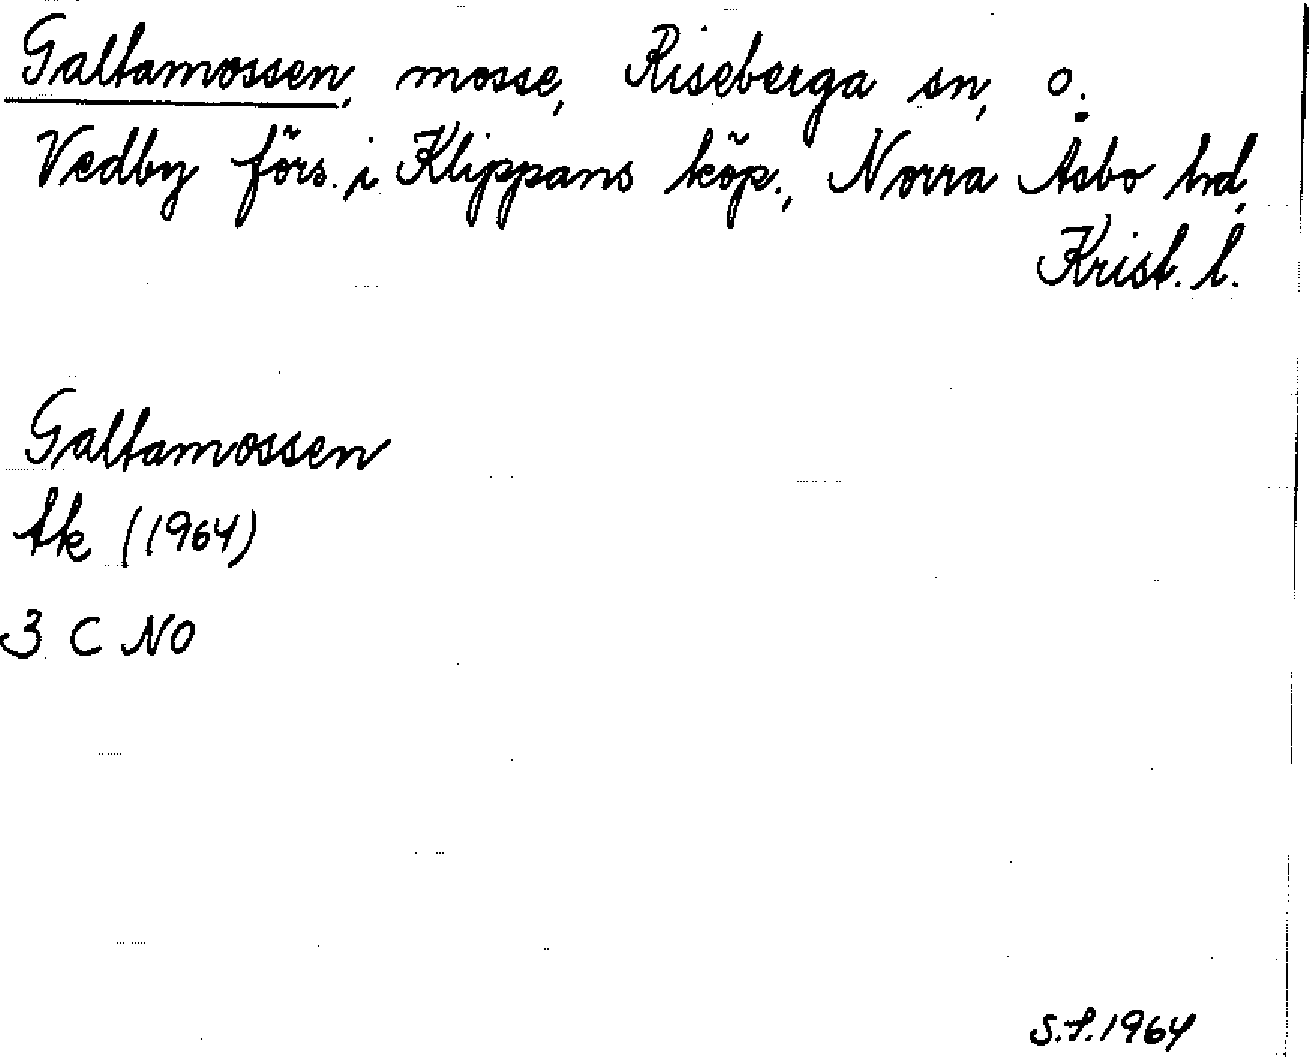 Galtamossen, mosse, Riseberga sn, o.
Vedby förs. i Klippans köp., Norra Åsbo hd,
Krist. l.
Galtamossen
tk (1964)
3 C NO
S.F. 1964